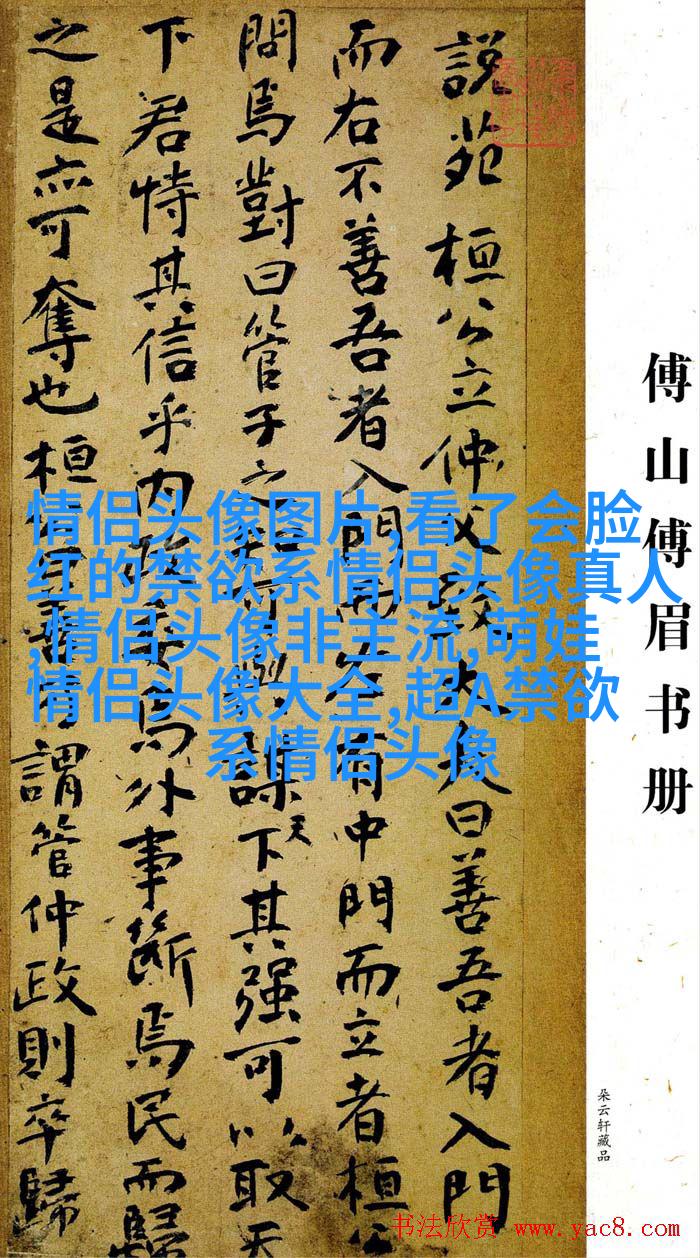 傅山傅眉书册
朵云轩藏品
説苑 桓公立仲父致大夫曰善吾者入門
而右不善吾者入門而左有中門而立者桓公
問焉對曰管子之知可與謀天下其强可以取天
下君恃其信乎内政委焉外事斷焉民而歸
之是亦可奪也桓公曰善乃謂管仲政則卒歸
情侣头像图片,看了会脸
红的禁欲系情侣头像真人
,情侣头像非主流,萌娃
情侣头像大全,超A禁欲
系情侣头像
书法欣赏 www.yac8.com